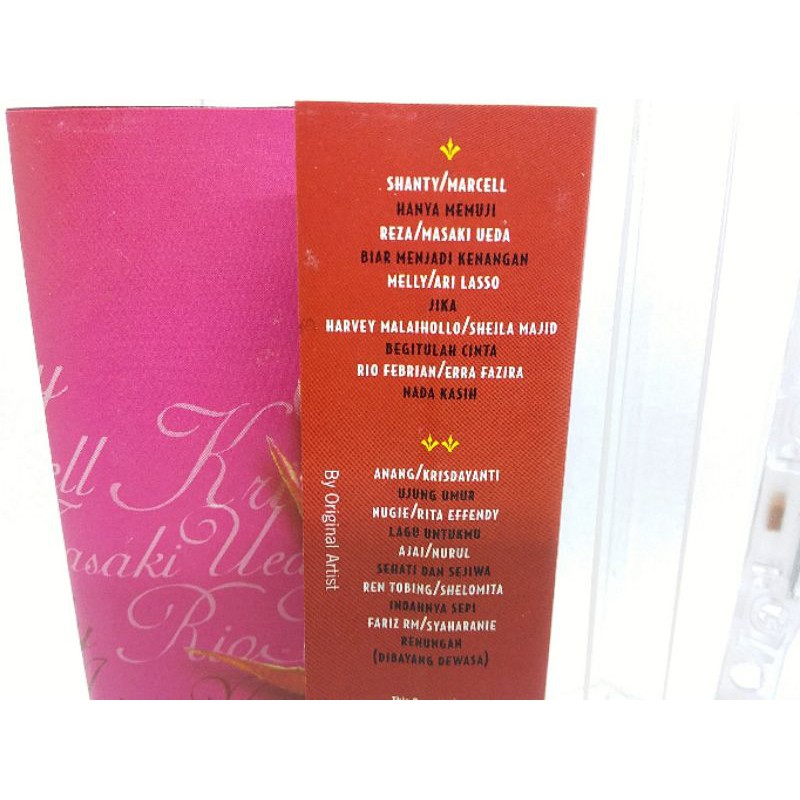 SHANTY/MARCELL
HANYA MEMUJI
REZA/MASAKI UEDA
BIAR MENJADI KENANGAN
MELLY/ARI LASSO
JIKA
HARVEY MALAIHOLLO/SHEILA MAJID
BEGITULAH CINTA
RIO FEBRIAN/ERRA FAZIRA
NADA KASIH
ANANG/KRISDAYANTI
UJUNG UMUR
NUGIE/RITA EFFENDY
LAGU UNTUKMU
AJAI/NURUL
SEHATI DAN SEJIWA
REN TOBING/SHELOMITA
INDAHNYA SEPI
FARIZ RM/SYAHARANIE
RENUNGAN
(DIBAYANG DEWASA)
By Original Artist
ell Kr
asaki Ued
Rio